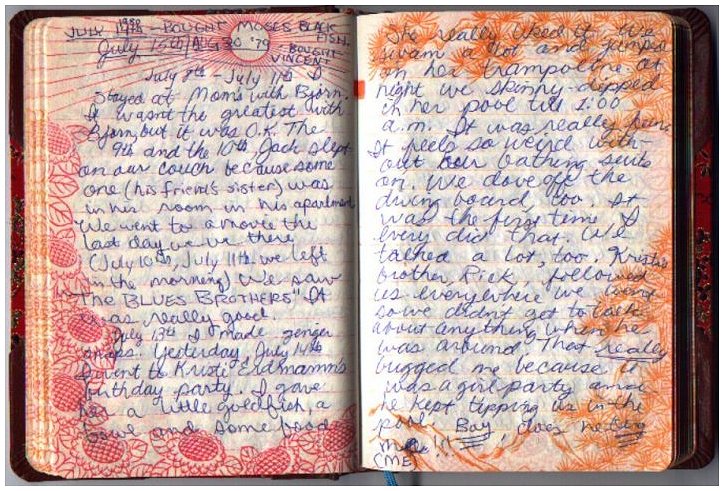 JULY 1980 - BOUGHT MOSES BLACK
FISH.
July 15th/AUG 30 '79 BOUGHT
VINCENT
July 8th - July 11th I
Stayed at Mom's with Bjorn.
It wasn't the greatest with
Bjorn, but it was O.K. The
9th and the 10th Jack slept
on our couch because some
one (his friend's sister) was
in his room in his apartment
We went to a movie the
last day we were there
(July 10th, July 11th we left
in the morning) We saw
"THE BLUES BROTHERS" It
was really good.
July 13th I made genger
snaps. Yesterday, July 14th
I went to Kristi Erdmann's
birthday party. I gave
her a little goldfish, a
bowl and some food
She really liked it. We
swam a lot and jumped
on her trampoline at
night we skinny-dipped
in her pool till 1:00
a.m. It was really fun.
It feels so weird with-
out our bathing suits
on. We dove off the
diving board, too. It
was the first time I
every did that. We
talked a lot, too. Kristi's
brother Rick, followed
us everywhere we went
so we didn't get to talk
about anything when he
was around. That really
bugged me because it
was a girl party and
he kept tipping us in the
pool. Boy does he bug
me!!!
(ME)